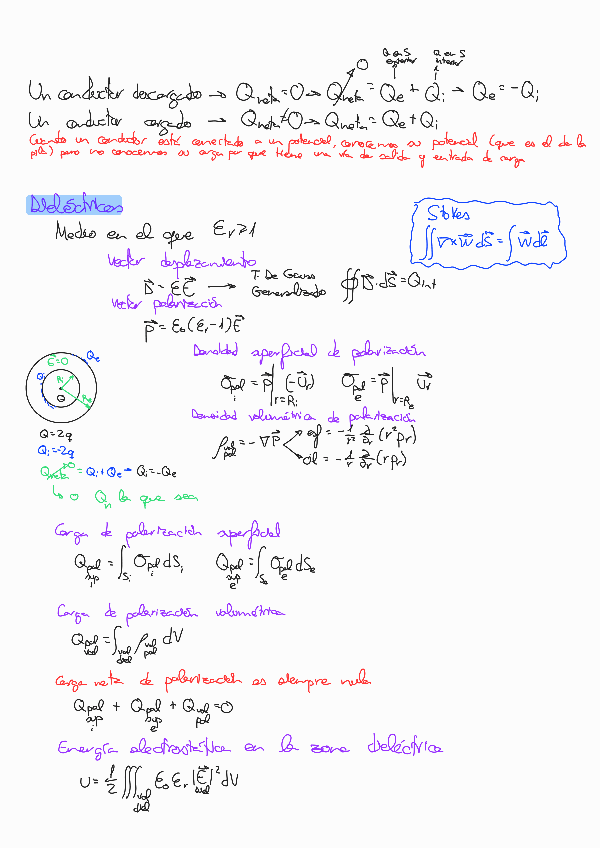 Q en S exterior Q en S interior
Un conductor descargado → Q neta = 0 → Q neta = Qe + Qi → Qe = -Qi
0
Un conductor cargado → Q neta ≠ 0 → Q neta = Qe + Qi
Cuando un conductor está conectado a un potencial, conocemos su potencial (que es el de la
pila) pero no conocemos su carga por que tiene una vía de salida y entrada de carga
Dieléctricos
Stokes
∬ ∇×w⃗ dS⃗ = ∫ w⃗ dl⃗
Medio en el que εr ≥ 1
Vector desplazamiento
D⃗ = εE⃗ → T. De Gauss Generalizado ∯ D⃗·dS⃗ = Qint
Vector polarización
P⃗ = ε0 (εr - 1) E⃗
Densidad superficial de polarización
σpol i = P⃗ | r=Ri (-U⃗r) σpol e = P⃗ | r=Re U⃗r
Densidad volumétrica de polarización
ρvol pol = -∇P⃗
esf = -1/r² ∂/∂r (r² Pr)
cil = -1/r ∂/∂r (r Pr)
E⃗=0 Qe
Qi Ri
Q Re
Q = 2q
Qi = -2q
Q neta = Qi + Qe → Qi = -Qe
0
↳ o Qn la que sea
Carga de polarización superficial
Qpol sup i = ∫Si σpol i dSi Qpol sup e = ∫Se σpol e dSe
Carga de polarización volumétrica
Qpol vol = ∫vol diel ρvol pol dV
Carga neta de polarización es siempre nula
Qpol sup i + Qpol sup e + Qvol pol = 0
Energía electrostática en la zona dieléctrica
U = 1/2 ∭vol diel ε0 εr |E⃗diel|² dV